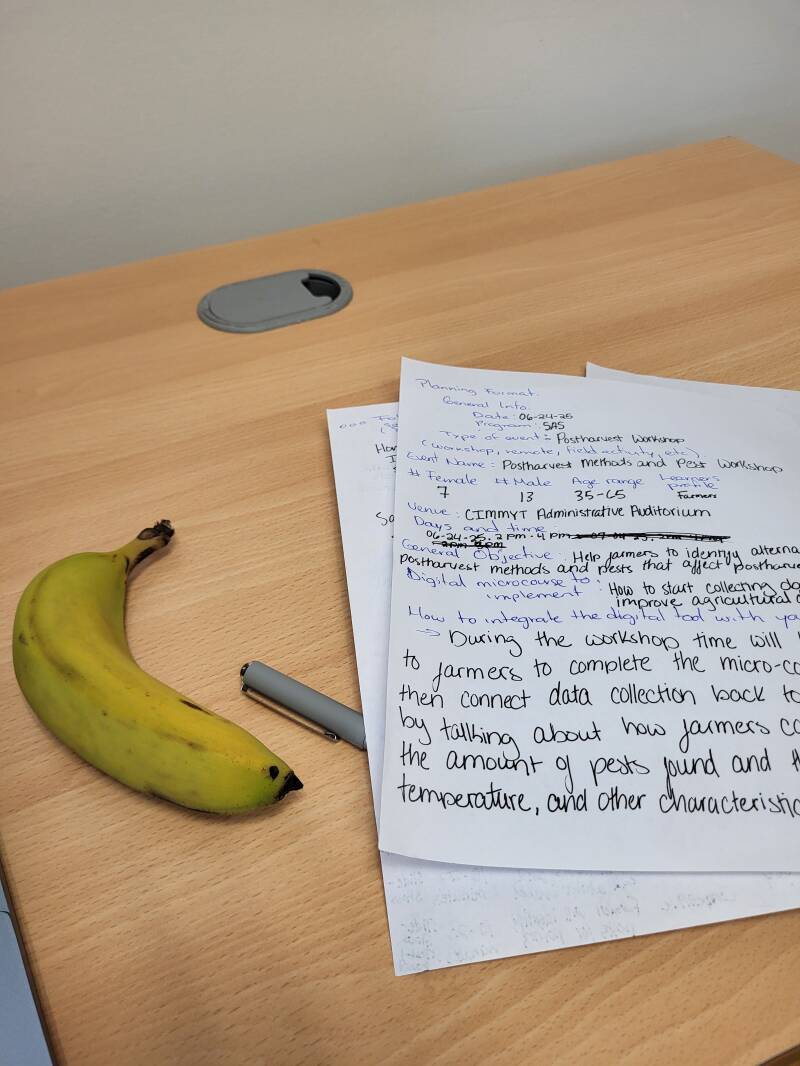 Planning Format:
General Info.
Date: 06-24-25
Program: SAS
Type of event: Postharvest Workshop
(workshop, remote, field activity, etc).
Event Name: Postharvest Methods and Pest Workshop
# Female # Male Age range Learners profile
7 13 35-65 Farmers
Venue: CIMMYT Administrative Auditorium
Days and time:
06-24-25, 2pm-4pm
General Objective: Help farmers to identify alterna
postharvest methods and pests that affect postharve
Digital microcourse to : How to start collecting da
implement improve agricultural
How to integrate the digital tool with yo
→ During the workshop time will
to farmers to complete the micro-co
then connect data collection back to
by talking about how farmers co
the amount of pests found and th
temperature, and other characteristic